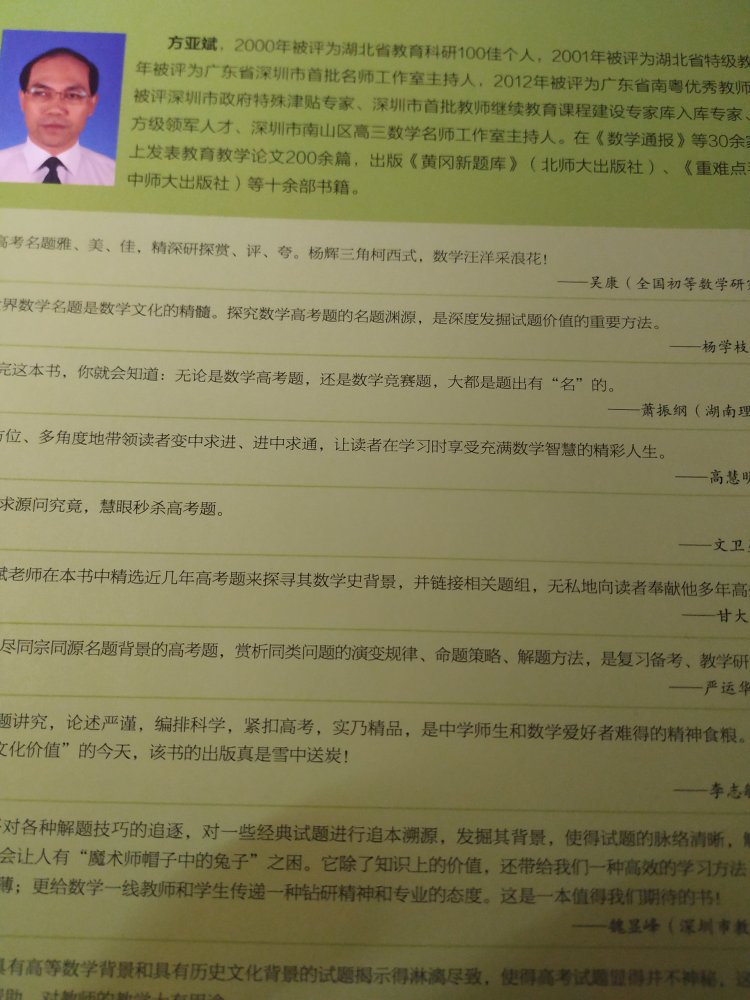 方亚斌，2000年被评为湖北省教育科研100佳个人，2001年被评为湖北省特级教
年被评为广东省深圳市首批名师工作室主持人，2012年被评为广东省南粤优秀教师
被评深圳市政府特殊津贴专家、深圳市首批教师继续教育课程建设专家库入库专家、
方级领军人才、深圳市南山区高三数学名师工作室主持人。在《数学通报》等30余
上发表教育教学论文200余篇，出版《黄冈新题库》（北师大出版社）、《重难点
中师大出版社）等十余部书籍。
高考名题雅、美、佳，精深研探赏、评、夸。杨辉三角柯西式，数学汪洋采浪花！
——吴康（全国初等数学研
世界数学名题是数学文化的精髓。探究数学高考题的名题渊源，是深度发掘试题价值的重要方法。
——杨学枝
完这本书，你就会知道：无论是数学高考题，还是数学竞赛题，大都是题出有“名”的。
——萧振纲（湖南理
方位、多角度地带领读者变中求进、进中求通，让读者在学习时享受充满数学智慧的精彩人生。
——高慧明
求源问究竟，慧眼秒杀高考题。
——文卫
斌老师在本书中精选近几年高考题来探寻其数学史背景，并链接相关题组，无私地向读者奉献他多年高
——甘大
尽同宗同源名题背景的高考题，赏析同类问题的演变规律、命题策略、解题方法，是复习备考、教学研
——严运华
题讲究，论述严谨，编排科学，紧扣高考，实乃精品，是中学师生和数学爱好者难得的精神食粮。
文化价值”的今天，该书的出版真是雪中送炭！
——李志敏
对各种解题技巧的追逐，对一些经典试题进行追本溯源，发掘其背景，使得试题的脉络清晰，
会让人有“魔术师帽子中的兔子”之困。它除了知识上的价值，还带给我们一种高效的学习方法
薄；更给数学一线教师和学生传递一种钻研精神和专业的态度。这是一本值得我们期待的书！
——魏显峰（深圳市教
具有高等数学背景和具有历史文化背景的试题揭示得淋漓尽致，使得高考试题显得并不神秘，
帮助，对教师的教学大有用途